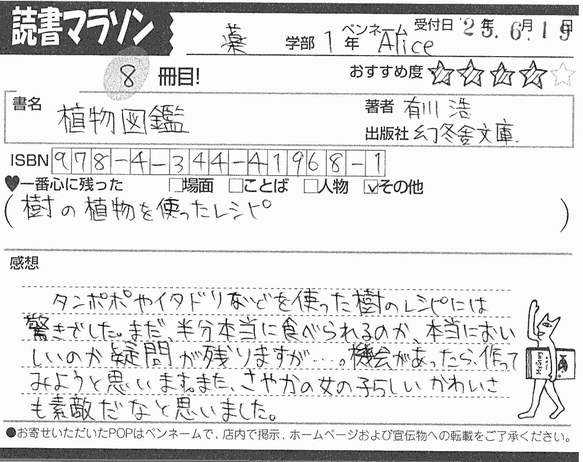 読書マラソン
薬 学部 1年 ペンネーム Alice 受付日 '25.6月19日
8 冊目! おすすめ度
書名 植物図鑑 著者 有川 浩
出版社 幻冬舎文庫.
ISBN 978-4-344-41968-1
♥一番心に残った □場面 □ことば □人物 ☑その他
(樹の植物を使ったレシピ)
感想
タンポポやイタドリなどを使った樹のレシピには
驚きでした。まだ、半分本当に食べられるのか、本当においし
いしいのか疑問が残りますが…。機会があったら、作って
みようと思います。また、さやかの女の子らしい かわいさ
も素敵だなと思いました。
●お寄せいただいたPOPはペンネームで、店内で掲示、ホームページおよび宣伝物への転載をご了承ください。